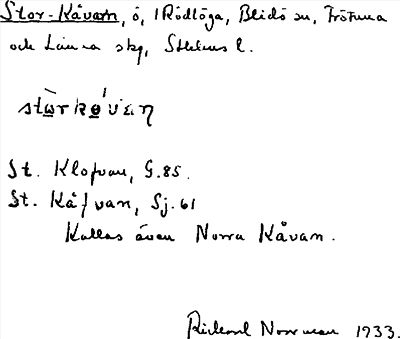 Stor-Kåvarn, ö, i Rödlöga, Blidö sn, Frötuna
och Länna skg, Sthlms l.
St. Klofvan, G.85.
St. Kåfvan, Sj.61
Kallas även Norra Kåvan.
Rickard Norrman 1933.